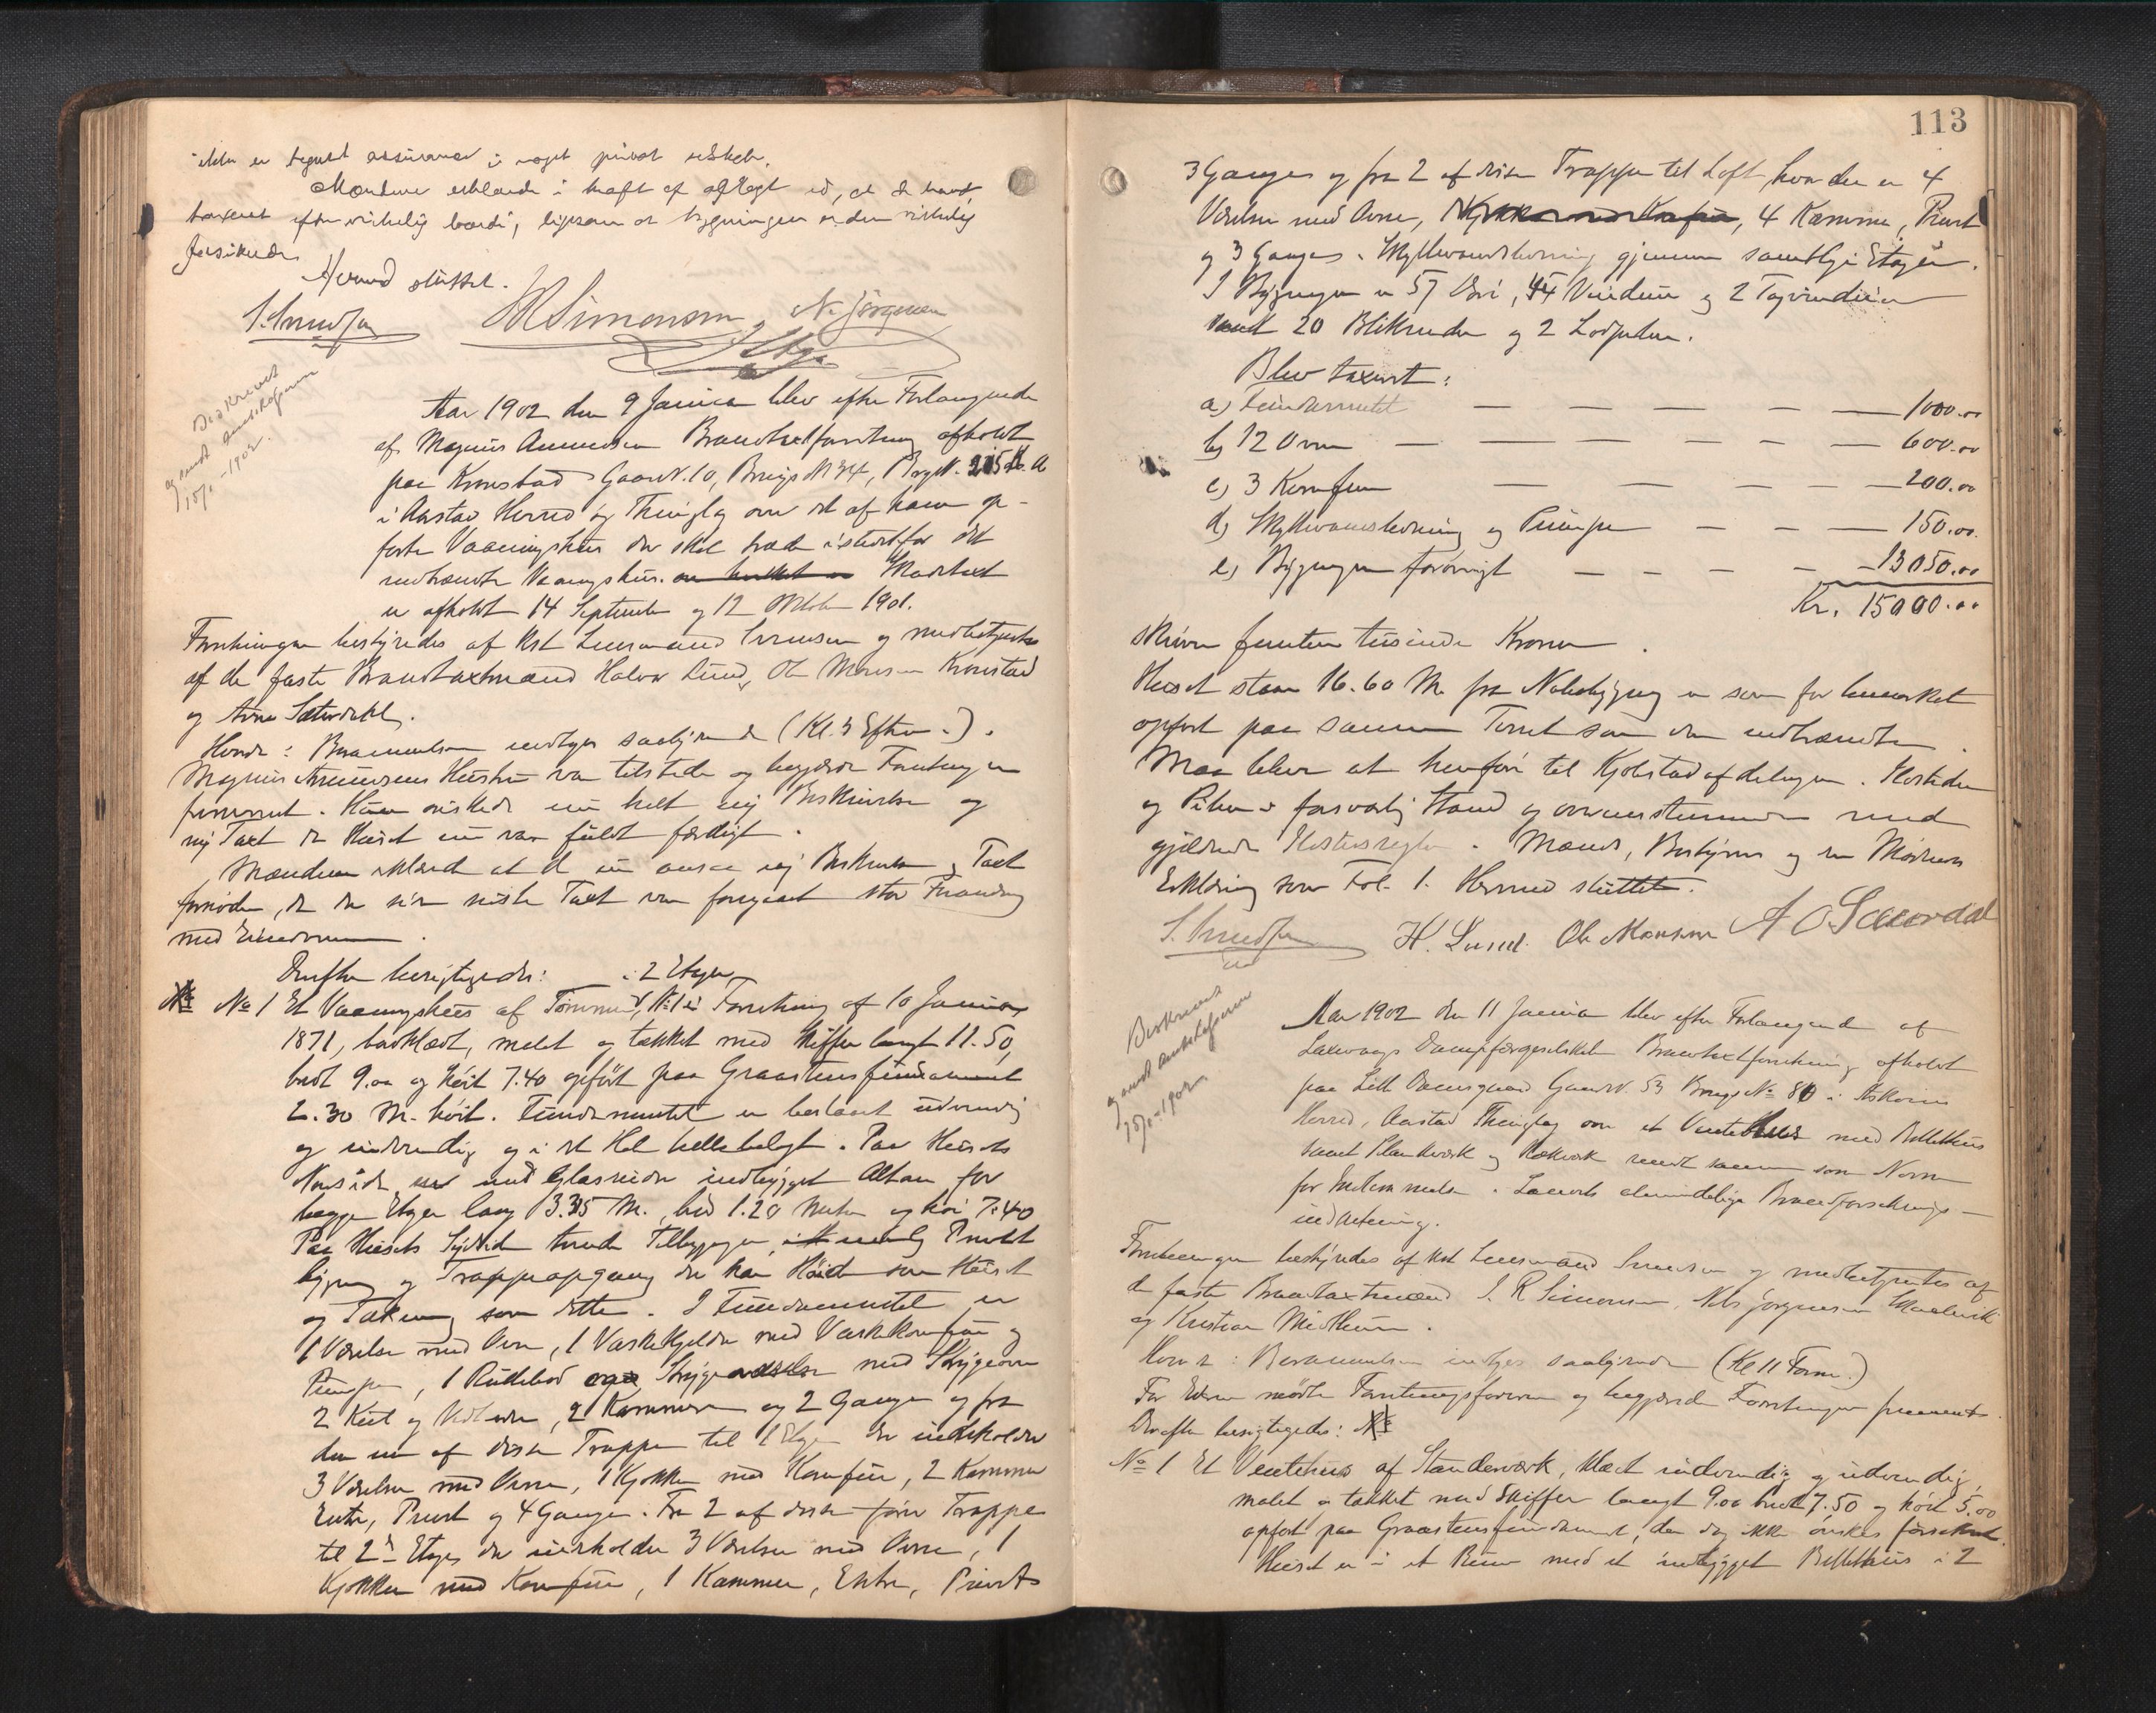 ikke er tegnet assurance i noget privat selskab.
Mændene erklærede i kraft af aflagt ed, at de havde
taxeret efter virkelig værdi, ligesom at bygningen er den virkelig
forsikrede.
Hermed sluttet.
S. Svendsen SR Simonsen N. Jörgensen
Beskrevet
og sendt Amtskassereren
15/1-1902.
Aar 1902 den 9 Januar blev efter Forlangende
af Magnus Amundsen Brandtaxtforretning afholdt
paa Kronstad Gaards N. 10, Brugs N 34, Bogst. 215 Lit. A
i Aarstad Herred og Thinglag over det af ham op-
førte Vaaningshus der skal træde istedetfor det
nedbrændte Vaaningshus. Skadetaxt
er afholdt 14 September og 12 Oktober 1901.
Forretningen bestyredes af Kst Lensmand Svendsen og medbetjentes
af de faste Brandtaxtmænd Halvor Lund, Ole Monsen Kronstad
og Arne Sætredahl.
Hvorda: Berammelsen indtoges saalydende (Kl. 3 Efterm.).
Magnus Amundsens Hustru var tilstede og begjærede Forretningen
fremmet. Hun ønskede nu helt ny Beskrivelse og
ny Taxt da Huset nu var fuldt færdigt.
Mændene erklærede at de nu ansaa ny Beskrivelse og Taxt
fornøden, da der siden sidste Taxt var foregaaet stor Forandring
med Eiendommen.
Derefter besigtigedes: i 2 Etager
No 1 Et Vaaningshus af Tømmer, No 1 i Forretning af 10 Januar
1871, bordklædt, malet og tækket med Skiffer langt 11.50,
bredt 9.00 og høit 7.40 opført paa Graastensfundament
2.30 M. høit. Fundamentet er beslaaet udvendig
og indvendig og i det Hele hellebelagt. Paa Husets
Nordside er med Glasruder indbygget Altan for
begge Etager lang 3.35 M., bred 1.20 Meter og høi 7.40
Paa Husets Sydside tvende Tilbygninger, nemlig Privet
bygning og Trappeopgang der har Høide som Huset
og Tækning som dette. I Fundamentet er
1 Værelse med Ovn, 1 Vaskekjelder med Vaskekomfur og
Pumpe, 1 Rullebod og Strygeværelse med Strygeovn
2 Kul og Vedboder, 2 Kammere og 2 Gange og fra
den ene af disse Trappe til 1 Etage der indeholder
3 Værelser med Ovne, 1 Kjøkken med Komfur, 2 Kammer
Entre, Privet og 4 Gange. Fra 2 af disse fører Trappe
til 2den Etage der indeholder 3 Værelser med Ovne, 1
Kjøkken med Komfur, 1 Kammer, Entre, Privet
113
3 Gange og fra 2 af disse Trapper til Loft, hvor der er 4
Værelser med Ovne, 4 Kammer, Privet
og 3 Gange. Skyllevandsledning gjennem samtlige Etager.
I Bygningen er 57 Døre, 44 Vinduer og 2 Tagvinduer
samt 20 Blikrender og 2 Lodpiber.
Blev taxeret:
a) Fundamentet — 1000.00
b) 12 Ovne — 600.00
c) 3 Komfur — 200.00
d) Skyllevandsledning og Pumpe — 150.00
e) Bygningen forøvrigt — 13050.00
Kr. 15000.00
skriver femten tusinde Kroner.
Huset staar 16.60 M. fra Nabobygning er som før bemærket
opført paa samme Tomt som den nedbrændte.
Maa blive at henføre til Kjøbstadafdelingen. Ildsteder
og Piber i forsvarlig Stand og overensstemmende med
gjældende Ildstedsregler. Mænds, Bestyrers og den Mødendes
Erklæring som Fol. 1. Hermed sluttet.
S. Svendsen H. Lund. Ole Monsen A O Sæterdal
Beskrevet
og sendt Amtskassereren
15/1-1902
Aar 1902 den 11 Januar blev efter Forlangende af
Laxevaags Dampfærgeselskab Brandtaxtforretning afholdt
paa Lille Damsgaard Gaards N. 53 Brugs No 80 i Askøens
Herred, Aarstad Thinglag over et Ventehus med Billethus
samt Plankværk og Rækværk rundt samme som Norm
for Indlemmelse i Landets almindelige Brandforsikrings-
indretning.
Forretningen bestyredes af Kst Lensmand Svendsen og medbetjentes af
de faste Brandtaxtmænd S. R Simonsen, Nils Jørgensen
og Kristian Midthun.
Hvorda: Berammelsen indtoges saalydende (Kl 11 Form.)
For Eieren mødte Forretningsføreren og begjærede Forretningen fremmet.
Derefter besigtigedes:
No 1 Et Ventehus af Standerværk, klædt indvendig og udvendig,
malet og tækket med Skiffer langt 9.00 bredt 7.50 og høit 5.00
opført paa Graastensfundament, der dog ikke ønskes forsikret.
Huset er i et Rum med et indbygget Billethus i 2